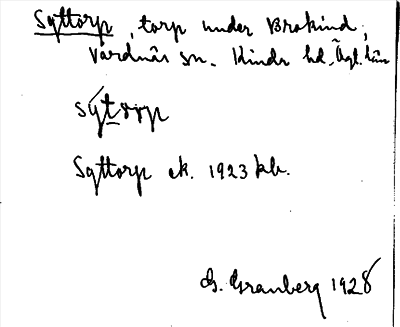 Syttorp, torp under Brokind,
Vårdnäs sn. Kinds hd, Ögl. län
sy´torp
Syttorp ek. 1923 kb.
G. Granberg 1928